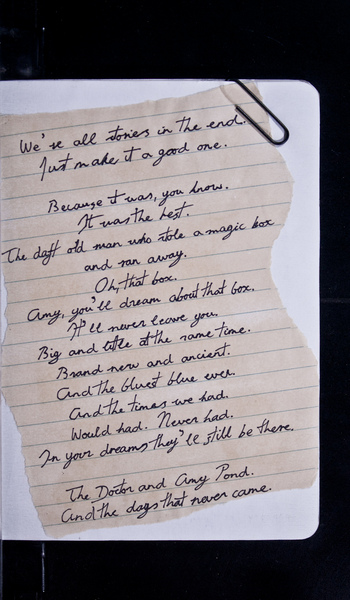 We're all stories in the end.
Just make it a good one.
Because it was, you know.
It was the best.
The daft old man who stole a magic box
and ran away.
Oh, that box.
Amy, you'll dream about that box.
It'll never leave you.
Big and little at the same time.
Brand new and ancient.
And the bluest blue ever.
And the times we had.
Would had. Never had.
In your dreams they'll still be there.
The Doctor and Amy Pond.
And the days that never came.